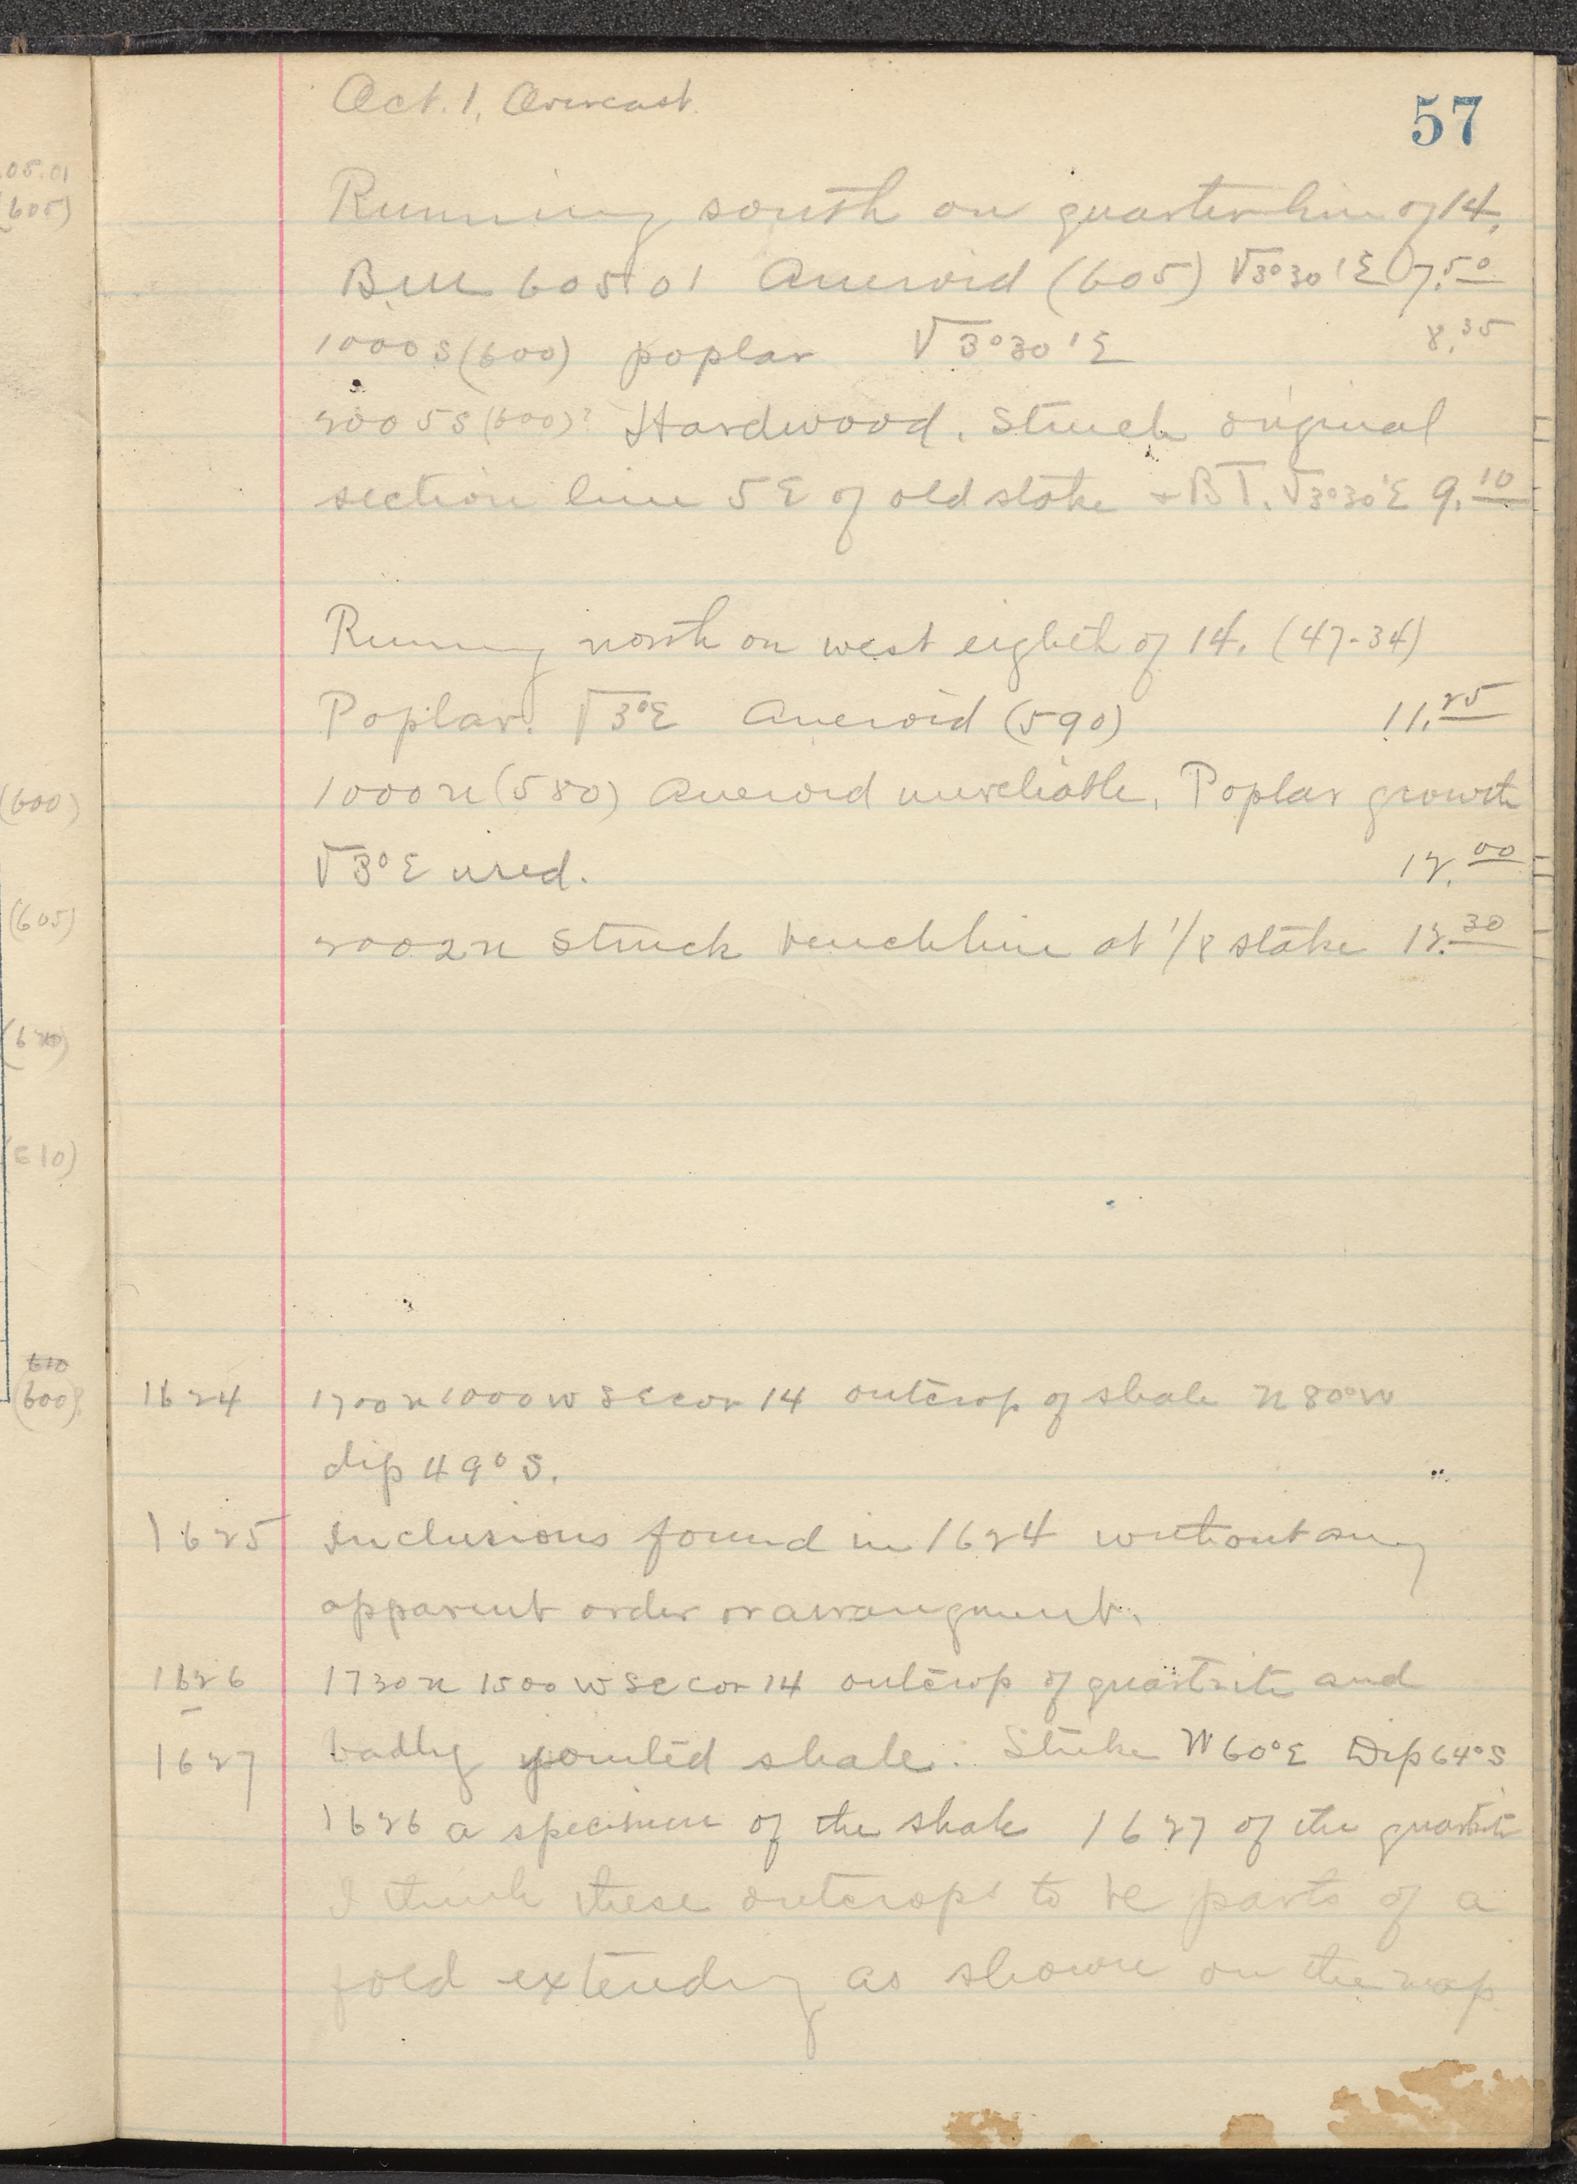 Oct. 1, Overcast.
57
Running south on quarter line of 14,
BM 605.01 Aneroid (605) V3°30'E 7.50
1000 S (600) poplar V 3°30'E 8.35
2005 S (600)? Hardwood. Struck original
section line 5 E of old stake + BT. V3°30'E 9.10
Running north on west eighth of 14. (47-34)
Poplar. V3°E Aneroid (590) 11.25
1000 N (580) Aneroid unreliable. Poplar growth
V3°E used. 12.00
2002 N Struck benchline at 1/8 stake 12.30
1624 1700 N 1000 W SE cor 14 outcrop of shale N 80°W
dip 49° S.
1625 Inclusions found in 1624 without any
apparent order or arrangment.
1626 1730 N 1500 W SE cor 14 outcrop of quartzite and
1627 badly jointed shale. Strike N 60°E Dip 64°S
1626 a specimen of the shale 1627 of the quartzite
I think these outcrops to be parts of a
fold extending as shown on the map
05.01
(605)
(600)
(605)
(620)
610)
610
(600)